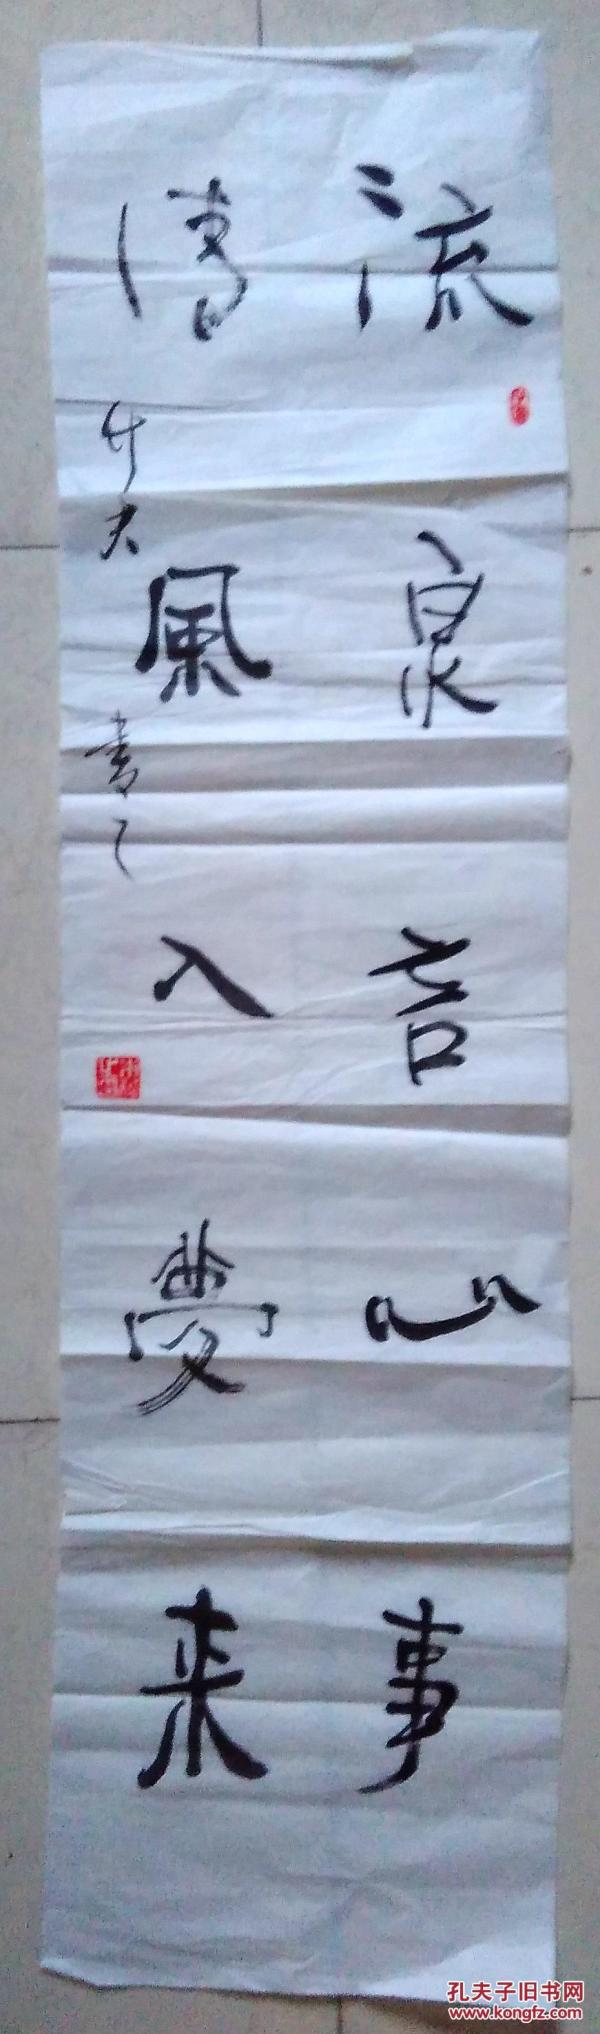 流泉言心事
清風入夢来
孔夫子旧书网
www.kongfz.com